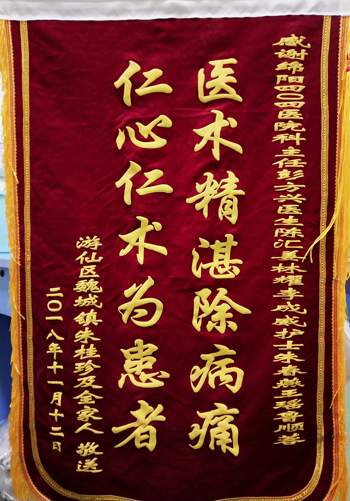 感谢绵阳四〇四医院科主任彭方兴医生陈汇羕林耀李成威护士朱春燕王璐鲁顺蓉
医术精湛除病痛
仁心仁术为患者
游仙区魏城镇朱桂珍及全家人 敬送
二〇一八年十一月十二日